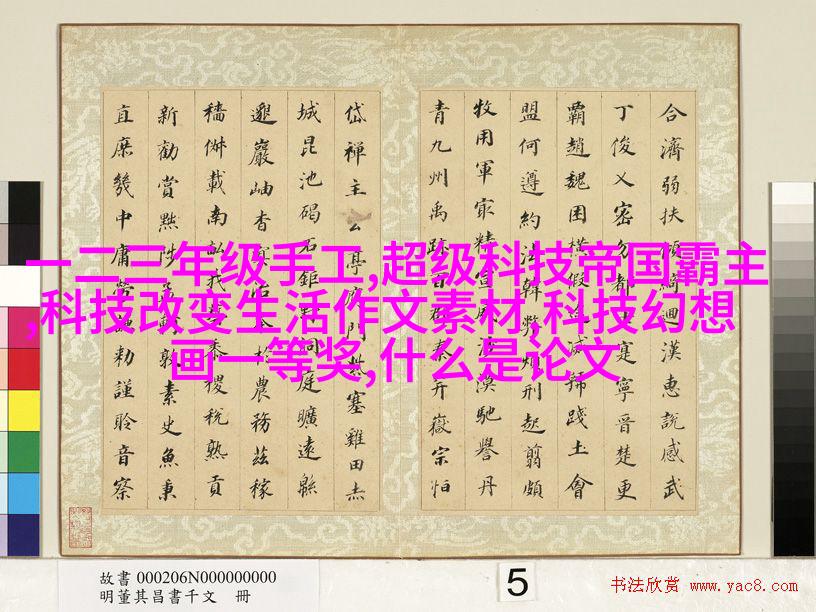 合濟弱扶傾綺迴漢惠說感武
丁俊乂密勿士寔寧晉楚更
霸趙魏困橫假途滅虢踐土會
盟何遵約法韓弊煩刑起翦頗
牧用軍最精宣威沙漠馳譽丹
青九州禹跡百郡秦并嶽宗恒
岱禪主云亭雁門紫塞雞田赤
城昆池碣石鉅野洞庭曠遠緜
邈巖岫杳冥治本於農務茲稼
穡俶載南畝我藝黍稷稅熟貢
新勸賞黜陟孟軻敦素史魚秉
直庶幾中庸勞謙勅謹聆音察
一二三年级手工,超级科技帝国霸主
,科技改变生活作文素材,科技幻想
画一等奖,什么是论文
故書 000206N000000000
明董其昌書千文 冊
5
书法欣赏 www.yac8.com